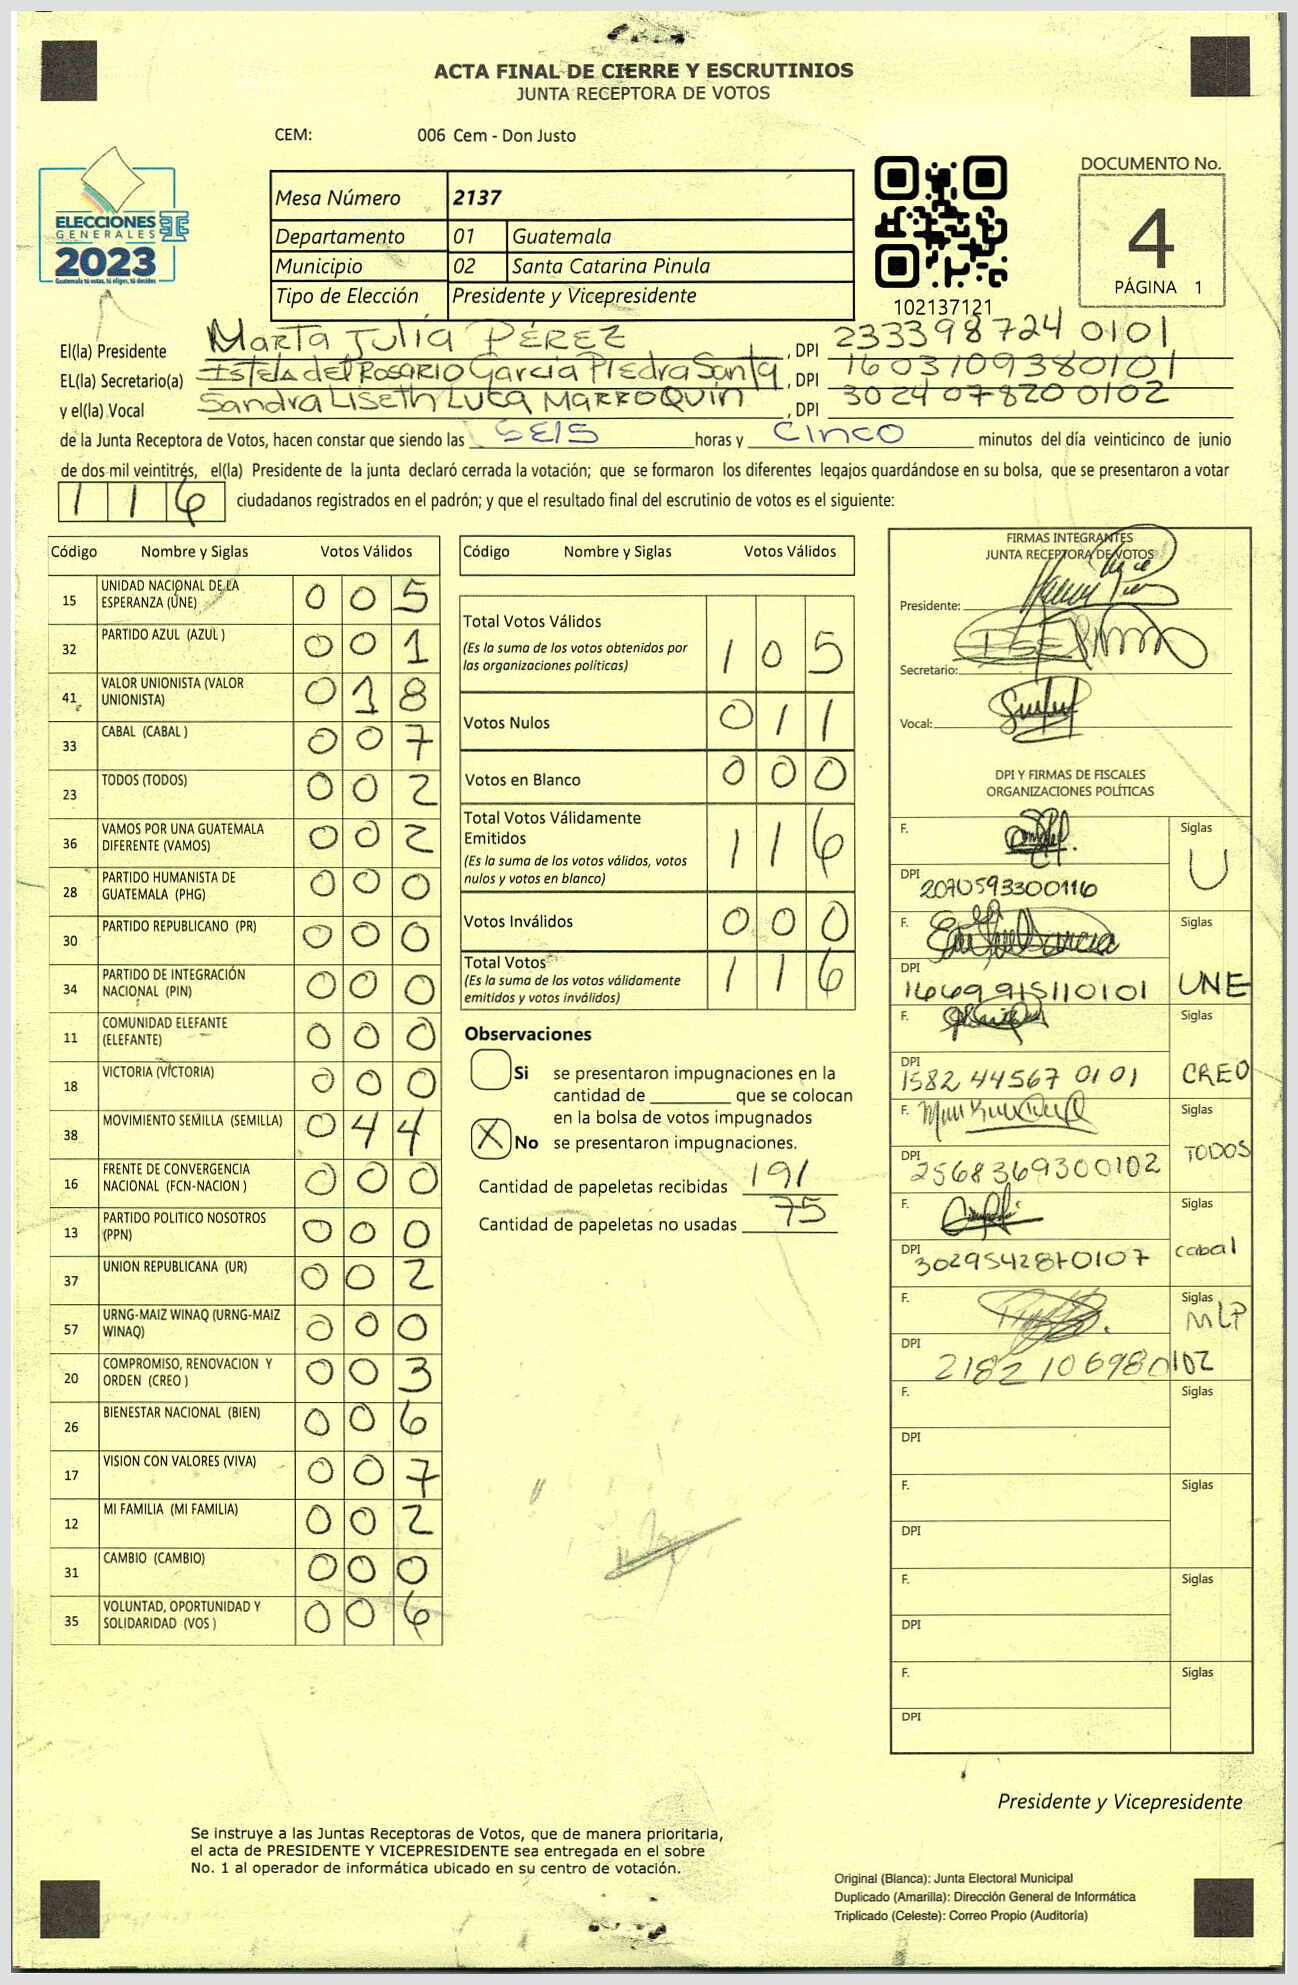 ACTA FINAL DE CIERRE Y ESCRUTINIOS
JUNTA RECEPTORA DE VOTOS
CEM: 006 Cem - Don Justo
ELECCIONES
GENERALES
2023
Guatemala tú votas, tú eliges, tú decides
Mesa Número 2137
Departamento 01 Guatemala
Municipio 02 Santa Catarina Pinula
Tipo de Elección Presidente y Vicepresidente
102137121
DOCUMENTO No.
4
PÁGINA 1
El(la) Presidente Marta Julia Pérez , DPI 2333987240101
EL(la) Secretario(a) Istela del Rosario García Piedra Santa , DPI 1603109380101
y el(la) Vocal Sandra Liseth Luca Marroquín , DPI 3024078200102
de la Junta Receptora de Votos, hacen constar que siendo las SEIS horas y CINCO minutos del día veinticinco de junio
de dos mil veintitrés, el(la) Presidente de la junta declaró cerrada la votación; que se formaron los diferentes legajos guardándose en su bolsa, que se presentaron a votar
116 ciudadanos registrados en el padrón; y que el resultado final del escrutinio de votos es el siguiente:
Código Nombre y Siglas Votos Válidos
15 UNIDAD NACIONAL DE LA ESPERANZA (UNE) 0 0 5
32 PARTIDO AZUL (AZUL ) 0 0 1
41 VALOR UNIONISTA (VALOR UNIONISTA) 0 1 8
33 CABAL (CABAL ) 0 0 7
23 TODOS (TODOS) 0 0 2
36 VAMOS POR UNA GUATEMALA DIFERENTE (VAMOS) 0 0 2
28 PARTIDO HUMANISTA DE GUATEMALA (PHG) 0 0 0
30 PARTIDO REPUBLICANO (PR) 0 0 0
34 PARTIDO DE INTEGRACIÓN NACIONAL (PIN) 0 0 0
11 COMUNIDAD ELEFANTE (ELEFANTE) 0 0 0
18 VICTORIA (VICTORIA) 0 0 0
38 MOVIMIENTO SEMILLA (SEMILLA) 0 4 4
16 FRENTE DE CONVERGENCIA NACIONAL (FCN-NACION ) 0 0 0
13 PARTIDO POLITICO NOSOTROS (PPN) 0 0 0
37 UNION REPUBLICANA (UR) 0 0 2
57 URNG-MAIZ WINAQ (URNG-MAIZ WINAQ) 0 0 0
20 COMPROMISO, RENOVACION Y ORDEN (CREO ) 0 0 3
26 BIENESTAR NACIONAL (BIEN) 0 0 6
17 VISION CON VALORES (VIVA) 0 0 7
12 MI FAMILIA (MI FAMILIA) 0 0 2
31 CAMBIO (CAMBIO) 0 0 0
35 VOLUNTAD, OPORTUNIDAD Y SOLIDARIDAD (VOS ) 0 0 6
Código Nombre y Siglas Votos Válidos
Total Votos Válidos 1 0 5
(Es la suma de los votos obtenidos por
las organizaciones políticas)
Votos Nulos 0 1 1
Votos en Blanco 0 0 0
Total Votos Válidamente
Emitidos 1 1 6
(Es la suma de los votos válidos, votos
nulos y votos en blanco)
Votos Inválidos 0 0 0
Total Votos 1 1 6
(Es la suma de los votos válidamente
emitidos y votos inválidos)
Observaciones
Si se presentaron impugnaciones en la
cantidad de ________ que se colocan
en la bolsa de votos impugnados
X No se presentaron impugnaciones.
Cantidad de papeletas recibidas 191
Cantidad de papeletas no usadas 75
FIRMAS INTEGRANTES
JUNTA RECEPTORA DE VOTOS
Presidente:
Secretario:
Vocal:
DPI Y FIRMAS DE FISCALES
ORGANIZACIONES POLÍTICAS
F. Siglas
DPI 2070593300116 U
F. Siglas
DPI 1669915110101 UNE
F. Siglas
DPI 1582 44567 0101 CREO
F. Siglas
DPI 2568369300102 TODOS
F. Siglas
DPI 3029542870107 cabal
F. Siglas
DPI 2182106980102 MLP
F. Siglas
DPI
F. Siglas
DPI
F. Siglas
DPI
F. Siglas
DPI
Presidente y Vicepresidente
Se instruye a las Juntas Receptoras de Votos, que de manera prioritaria,
el acta de PRESIDENTE Y VICEPRESIDENTE sea entregada en el sobre
No. 1 al operador de informática ubicado en su centro de votación.
Original (Blanca): Junta Electoral Municipal
Duplicado (Amarilla): Dirección General de Informática
Triplicado (Celeste): Correo Propio (Auditoría)